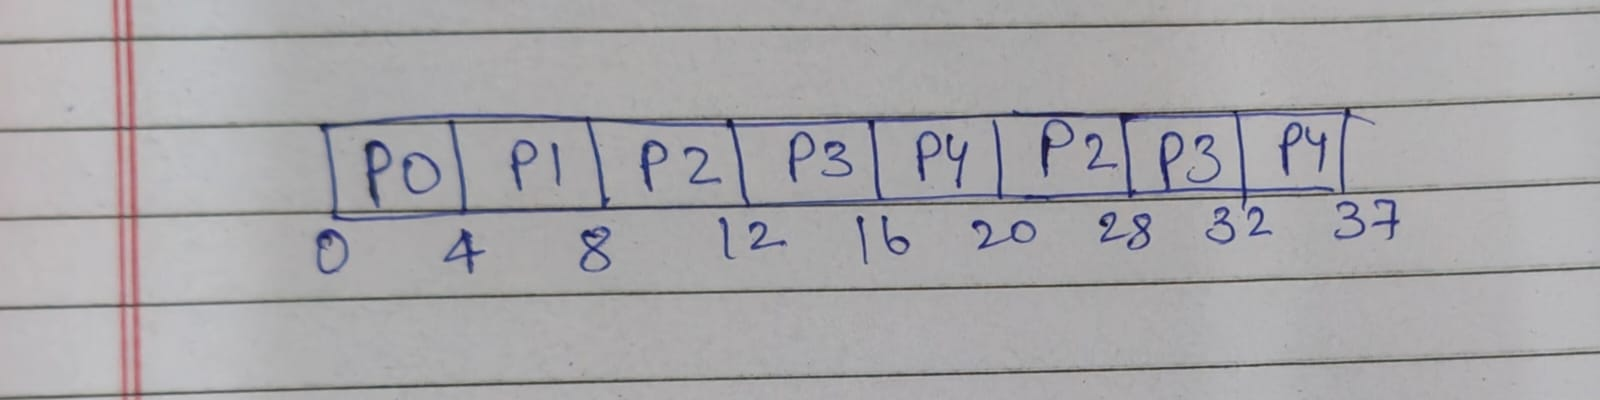 P0 P1 P2 P3 P4 P2 P3 P4
0 4 8 12 16 20 28 32 37